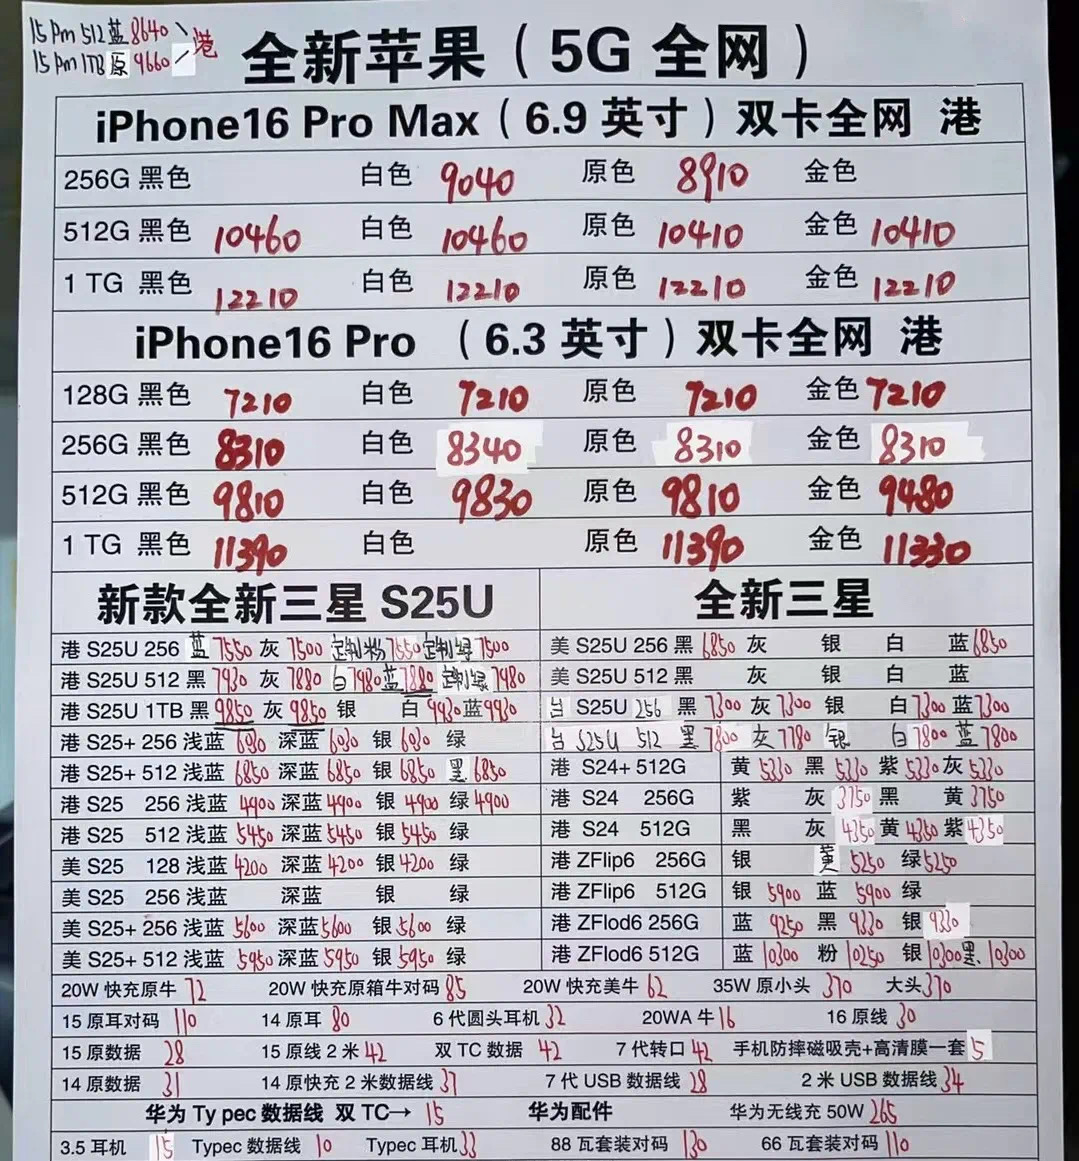 15 Pm 512 蓝 8640 港
15 Pm 1TB 原 9660
全新苹果（5G 全网）
iPhone16 Pro Max（6.9 英寸）双卡全网 港
256G 黑色 白色 9040 原色 8910 金色
512G 黑色 10460 白色 10460 原色 10410 金色 10410
1 TG 黑色 12210 白色 12210 原色 12210 金色 12210
iPhone16 Pro （6.3 英寸）双卡全网 港
128G 黑色 7210 白色 7210 原色 7210 金色 7210
256G 黑色 8310 白色 8340 原色 8310 金色 8310
512G 黑色 9810 白色 9830 原色 9810 金色 9480
1 TG 黑色 11390 白色 原色 11390 金色 11330
新款全新三星 S25U
港 S25U 256 蓝 7550 灰 7500 定制粉 7550 定制绿 7500
港 S25U 512 黑 7930 灰 7880 白 7980 蓝 7880 定制绿 7980
港 S25U 1TB 黑 9850 灰 9850 银 白 9930 蓝 9930
港 S25+ 256 浅蓝 6030 深蓝 6030 银 6030 绿
港 S25+ 512 浅蓝 6850 深蓝 6850 银 6850 黑 6850
港 S25 256 浅蓝 4900 深蓝 4900 银 4900 绿 4900
港 S25 512 浅蓝 5450 深蓝 5450 银 5450 绿
美 S25 128 浅蓝 4200 深蓝 4200 银 4200 绿
美 S25 256 浅蓝 深蓝 银 绿
美 S25+ 256 浅蓝 5600 深蓝 5600 银 5600 绿
美 S25+ 512 浅蓝 5950 深蓝 5950 银 5950 绿
全新三星
美 S25U 256 黑 6850 灰 银 白 蓝 6850
美 S25U 512 黑 灰 银 白 蓝
台 S25U 256 黑 7300 灰 7300 银 白 7300 蓝 7300
台 S25U 512 黑 7800 灰 7780 银 白 7800 蓝 7800
港 S24+ 512G 黄 5330 黑 5330 紫 5330 灰 5330
港 S24 256G 紫 灰 3750 黑 黄 3750
港 S24 512G 黑 灰 4350 黄 4350 紫 4350
港 ZFlip6 256G 银 黄 5250 绿 5250
港 ZFlip6 512G 银 5900 蓝 5900 绿
港 ZFlod6 256G 蓝 9250 黑 9330 银 9330
港 ZFlod6 512G 蓝 10300 粉 10250 银 10300 黑 10300
20W 快充原牛 72 20W 快充原箱牛对码 85 20W 快充美牛 62 35W 原小头 370 大头 370
15 原耳对码 110 14 原耳 80 6 代圆头耳机 32 20WA 牛 16 16 原线 30
15 原数据 28 15 原线 2 米 42 双 TC 数据 42 7 代转口 42 手机防摔磁吸壳+高清膜一套 5
14 原数据 31 14 原快充 2 米数据线 37 7 代 USB 数据线 28 2 米 USB 数据线 34
华为 Ty pec 数据线 双 TC→ 15 华为配件 华为无线充 50W 265
3.5 耳机 15 Typec 数据线 10 Typec 耳机 33 88 瓦套装对码 130 66 瓦套装对码 110